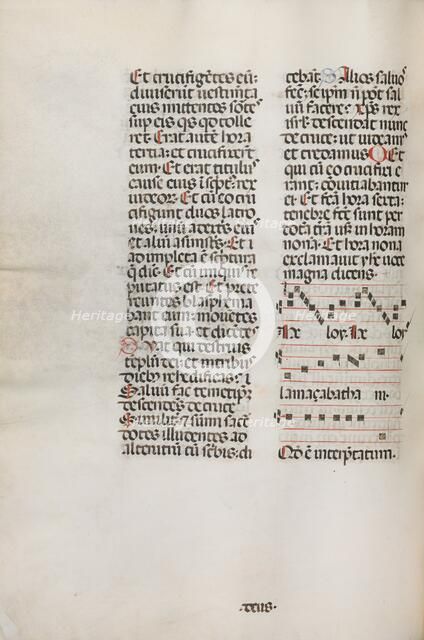 Et crucifigētes eū:
diviserūt vestimta
eius mittentes sorte
sup eis qs qd tolle
ret. Erat autē hora
tertia: et crucifixerūt
eum. Et erat titulus
cause eius īscptꝰ: rex
iudeoꝝ. Et cū eo cru
cifigunt duos latro
nes: unū a dextris eiꝰ
et aliū a sinistris. Et ī
adimpleta ē scptura
q dic. Et cū iniquis re
putatus est. Et prete
reuntes blasphema
bant eum: movētes
capita sua: et dicētes
Vah qui destruis
templū dei: et in tribꝰ
diebꝰ rehedificas:
Salvū fac temetipm
descendēs de cruce
Similiter summi sacer
dotes illudentes ad
alterutrū cū scribis: di
cebāt: Alios salvos
fec: seipm ñ pōt sal
vū facere. xps rex
isrl: descendat nunc
de cruce: ut videam
et credamus. Et
qui cū eo crucifixi e
rant: conviciabantur
ei. Et fca hora sexta:
tenebre fce sunt per
totā trā: usq in horam
nonā. Et hora nona
exclamavit ihc voce
magna dicens.
loy. loy
lamaçabatha ni.
Qd ē interptatum.
Heritage
Heritage
Heritage
Heritage